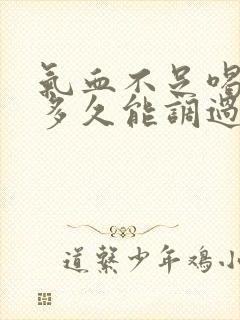 氣血不足喝
多久能調過
道繫少年鴻小